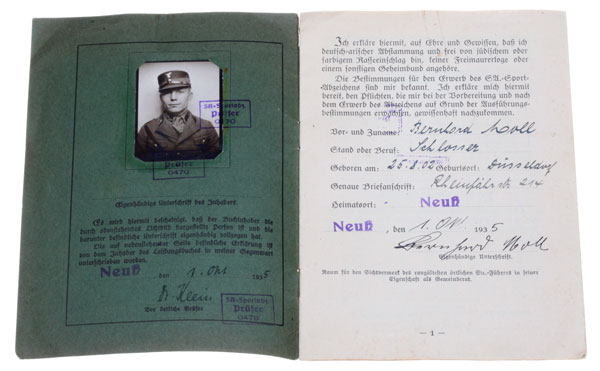 SA-Sportabz.
Prüfer
0470
Prüfer
0470
Eigenhändige Unterschrift des Inhabers.
Es wird hiermit bescheinigt, daß der Buchinhaber die
durch obenstehendes Lichtbild dargestellte Person ist und die
darunter befindliche Unterschrift eigenhändig vollzogen hat.
Die auf nebenstehender Seite befindliche Erklärung ist
von dem Inhaber des Leistungsbuches in meiner Gegenwart
unterschrieben worden.
Neuß, den 1. Okt 1935
Dr. Klein
Der örtliche Prüfer
SA-Sportabz.
Prüfer
0470
Ich erkläre hiermit, auf Ehre und Gewissen, daß ich
deutsch-arischer Abstammung und frei von jüdischem oder
farbigem Rasseeinschlag bin, keiner Freimaurerloge oder
einem sonstigen Geheimbund angehöre.
Die Bestimmungen für den Erwerb des SA.-Sport-
Abzeichens sind mir bekannt. Ich erkläre mich hiermit
bereit, den Pflichten, die mir bei der Vorbereitung und nach
dem Erwerb des Abzeichens auf Grund der Ausführungs-
bestimmungen erwachsen, gewissenhaft nachzukommen.
Vor- und Zuname: Bernhard Moll
Stand oder Beruf: Schlosser
Geboren am 25.8.02 Geburtsort: Düsseldorf
Genaue Briefanschrift: Rheinfährstr. 214
Heimatsort: Neuß
Neuß, den 1. Okt. 1935
Bernhard Moll
Eigenhändige Unterschrift.
Raum für den Sichtvermerk des rangältesten örtlichen SA.-Führers in seiner
Eigenschaft als Gemeinderat.
— 1 —